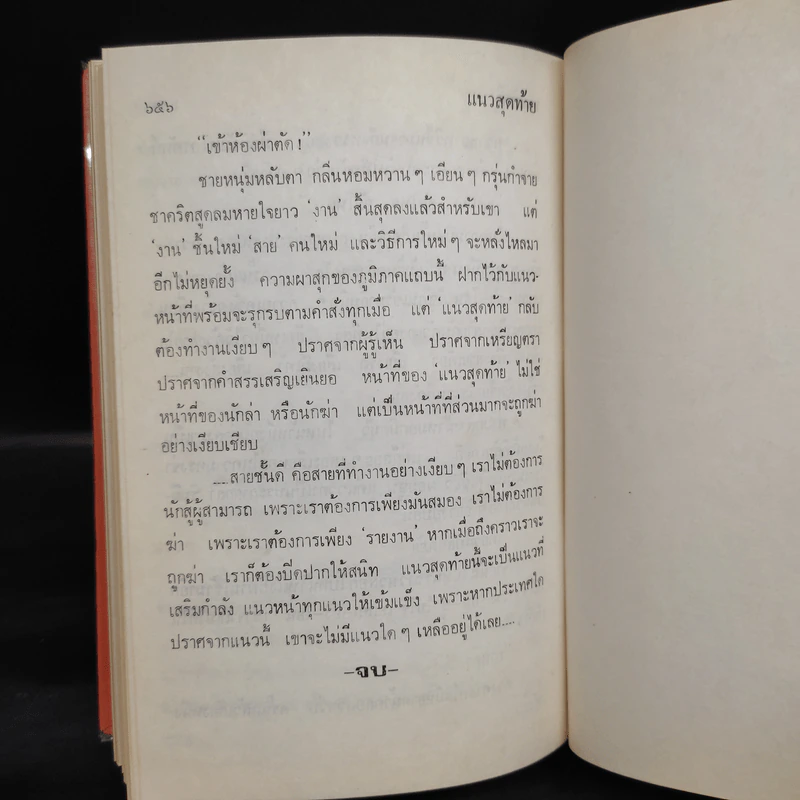 ๖๕๖
แนวสุดท้าย
“เข้าห้องผ่าตัด!”
ชายหนุ่มหลับตา กลิ่นหอมหวานๆ เอียนๆ กรุ่นกำจาย
ชาคริตสูดลมหายใจยาว ‘งาน’ สิ้นสุดลงแล้วสำหรับเขา แต่
‘งาน’ ชิ้นใหม่ ‘สาย’ คนใหม่ และวิธีการใหม่ๆ จะหลั่งไหลมา
อีกไม่หยุดยั้ง ความผาสุกของภูมิภาคแถบนี้ ฝากไว้กับแนว-
หน้าที่พร้อมจะรุกรบตามคำสั่งทุกเมื่อ แต่ ‘แนวสุดท้าย’ กลับ
ต้องทำงานเงียบๆ ปราศจากผู้รู้เห็น ปราศจากเหรียญตรา
ปราศจากคำสรรเสริญเยินยอ หน้าที่ของ ‘แนวสุดท้าย’ ไม่ใช่
หน้าที่ของนักล่า หรือนักฆ่า แต่เป็นหน้าที่ที่ส่วนมากจะถูกฆ่า
อย่างเงียบเชียบ
....สายชั้นดี คือสายที่ทำงานอย่างเงียบๆ เราไม่ต้องการ
นักสู้ผู้สามารถ เพราะเราต้องการเพียงมันสมอง เราไม่ต้องการ
ฆ่า เพราะเราต้องการเพียง ‘รายงาน’ หากเมื่อถึงคราวเราจะ
ถูกฆ่า เราก็ต้องปิดปากให้สนิท แนวสุดท้ายนี้จะเป็นแนวที่
เสริมกำลัง แนวหน้าทุกแนวให้เข้มแข็ง เพราะหากประเทศใด
ปราศจากแนวนี้ เขาจะไม่มีแนวใดๆ เหลืออยู่ได้เลย....
-จบ-